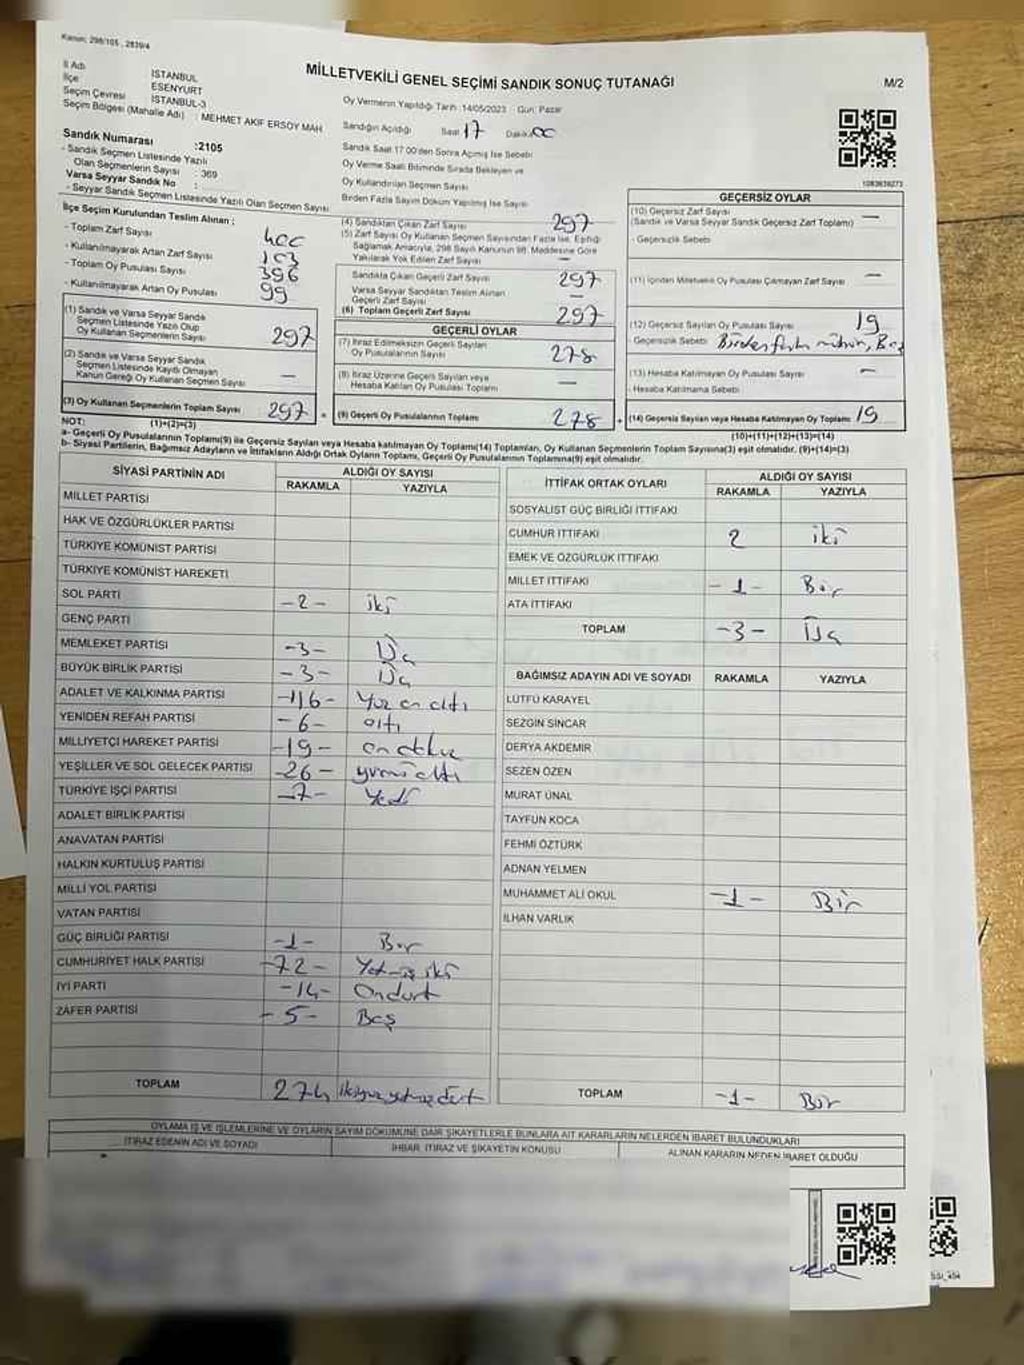 Kanun: 298/105 , 2839/4
MİLLETVEKİLİ GENEL SEÇİMİ SANDIK SONUÇ TUTANAĞI
M/2
İl Adı İSTANBUL
İlçe ESENYURT
Seçim Çevresi İSTANBUL-3
Seçim Bölgesi (Mahalle Adı) : MEHMET AKİF ERSOY MAH
Sandık Numarası :2105
- Sandık Seçmen Listesinde Yazılı
Olan Seçmenlerin Sayısı : 369
Varsa Seyyar Sandık No :
- Seyyar Sandık Seçmen Listesinde Yazılı Olan Seçmen Sayısı
Oy Vermenin Yapıldığı Tarih :14/05/2023 Gün: Pazar
Sandığın Açıldığı Saat 17 Dakika 00
Sandık Saat 17:00'den Sonra Açılmış İse Sebebi
Oy Verme Saati Bitiminde Sırada Bekleyen ve
Oy Kullandırılan Seçmen Sayısı
Birden Fazla Sayım Döküm Yapılmış İse Sayısı
1083639273
İlçe Seçim Kurulundan Teslim Alınan ;
- Toplam Zarf Sayısı 400
- Kullanılmayarak Artan Zarf Sayısı 103
- Toplam Oy Pusulası Sayısı 396
- Kullanılmayarak Artan Oy Pusulası 99
(1) Sandık ve Varsa Seyyar Sandık
Seçmen Listesinde Yazılı Olup
Oy Kullanan Seçmenlerin Sayısı 297
(2) Sandık ve Varsa Seyyar Sandık
Seçmen Listesinde Kaydı Olmayan
Kanun Gereği Oy Kullanan Seçmen Sayısı —
(3) Oy Kullanan Seçmenlerin Toplam Sayısı 297 =
(1)+(2)=(3)
(4) Sandıktan Çıkan Zarf Sayısı 297
(5) Zarf Sayısı Oy Kullanan Seçmen Sayısından Fazla İse, Eşitliği
Sağlamak Amacıyla, 298 Sayılı Kanunun 98. Maddesine Göre
Yakılarak Yok Edilen Zarf Sayısı —
Sandıkta Çıkan Geçerli Zarf Sayısı 297
Varsa Seyyar Sandıktan Teslim Alınan
Geçerli Zarf Sayısı —
(6) Toplam Geçerli Zarf Sayısı 297
GEÇERLİ OYLAR
(7) İtiraz Edilmeksizin Geçerli Sayılan
Oy Pusulalarının Sayısı 278
(8) İtiraz Üzerine Geçerli Sayılan veya
Hesaba Katılan Oy Pusulası Toplamı —
(9) Geçerli Oy Pusulalarının Toplamı 278 +
GEÇERSİZ OYLAR
(10) Geçersiz Zarf Sayısı —
(Sandık ve Varsa Seyyar Sandık Geçersiz Zarf Toplamı)
- Geçersizlik Sebebi
(11) İçinden Milletvekili Oy Pusulası Çıkmayan Zarf Sayısı —
(12) Geçersiz Sayılan Oy Pusulası Sayısı 19
- Geçersizlik Sebebi Birden fazla mühür,
(13) Hesaba Katılmayan Oy Pusulası Sayısı —
- Hesaba Katılmama Sebebi
(14) Geçersiz Sayılan veya Hesaba Katılmayan Oy Toplamı 19
(10)+(11)+(12)+(13)=(14)
NOT:
a- Geçerli Oy Pusulalarının Toplamı(9) ile Geçersiz Sayılan veya Hesaba katılmayan Oy Toplamı(14) Toplamları, Oy Kullanan Seçmenlerin Toplam Sayısına(3) eşit olmalıdır. (9)+(14)=(3)
b- Siyasi Partilerin, Bağımsız Adayların ve İttifakların Aldığı Ortak Oyların Toplamı, Geçerli Oy Pusulalarının Toplamına(9) eşit olmalıdır.
SİYASİ PARTİNİN ADI ALDIĞI OY SAYISI
RAKAMLA YAZIYLA
MİLLET PARTİSİ
HAK VE ÖZGÜRLÜKLER PARTİSİ
TÜRKİYE KOMÜNİST PARTİSİ
TÜRKİYE KOMÜNİST HAREKETİ
SOL PARTİ -2- iki
GENÇ PARTİ
MEMLEKET PARTİSİ -3- Üç
BÜYÜK BİRLİK PARTİSİ -3- Üç
ADALET VE KALKINMA PARTİSİ -116- Yüz on altı
YENİDEN REFAH PARTİSİ -6- altı
MİLLİYETÇİ HAREKET PARTİSİ -19- on dokuz
YEŞİLLER VE SOL GELECEK PARTİSİ -26- yirmi altı
TÜRKİYE İŞÇİ PARTİSİ -7- Yedi
ADALET BİRLİK PARTİSİ
ANAVATAN PARTİSİ
HALKIN KURTULUŞ PARTİSİ
MİLLİ YOL PARTİSİ
VATAN PARTİSİ
GÜÇ BİRLİĞİ PARTİSİ -1- Bir
CUMHURİYET HALK PARTİSİ -72- Yetmiş iki
İYİ PARTİ -14- Ondört
ZAFER PARTİSİ -5- Beş
TOPLAM 274 ikiyüz yetmiş dört
İTTİFAK ORTAK OYLARI ALDIĞI OY SAYISI
RAKAMLA YAZIYLA
SOSYALİST GÜÇ BİRLİĞİ İTTİFAKI
CUMHUR İTTİFAKI 2 iki
EMEK VE ÖZGÜRLÜK İTTİFAKI
MİLLET İTTİFAKI -1- Bir
ATA İTTİFAKI
TOPLAM -3- Üç
BAĞIMSIZ ADAYIN ADI VE SOYADI RAKAMLA YAZIYLA
LÜTFÜ KARAYEL
SEZGİN SİNCAR
DERYA AKDEMİR
SEZEN ÖZEN
MURAT ÜNAL
TAYFUN KOCA
FEHMİ ÖZTÜRK
ADNAN YELMEN
MUHAMMET ALİ OKUL -1- Bir
İLHAN VARLIK
TOPLAM -1- Bir
OYLAMA İŞ VE İŞLEMLERİNE VE OYLARIN SAYIM DÖKÜMÜNE DAİR ŞİKAYETLERLE BUNLARA AİT KARARLARIN NELERDEN İBARET BULUNDUKLARI
İTİRAZ EDENİN ADI VE SOYADI İHBAR, İTİRAZ VE ŞİKAYETİN KONUSU ALINAN KARARIN NEDEN İBARET OLDUĞU